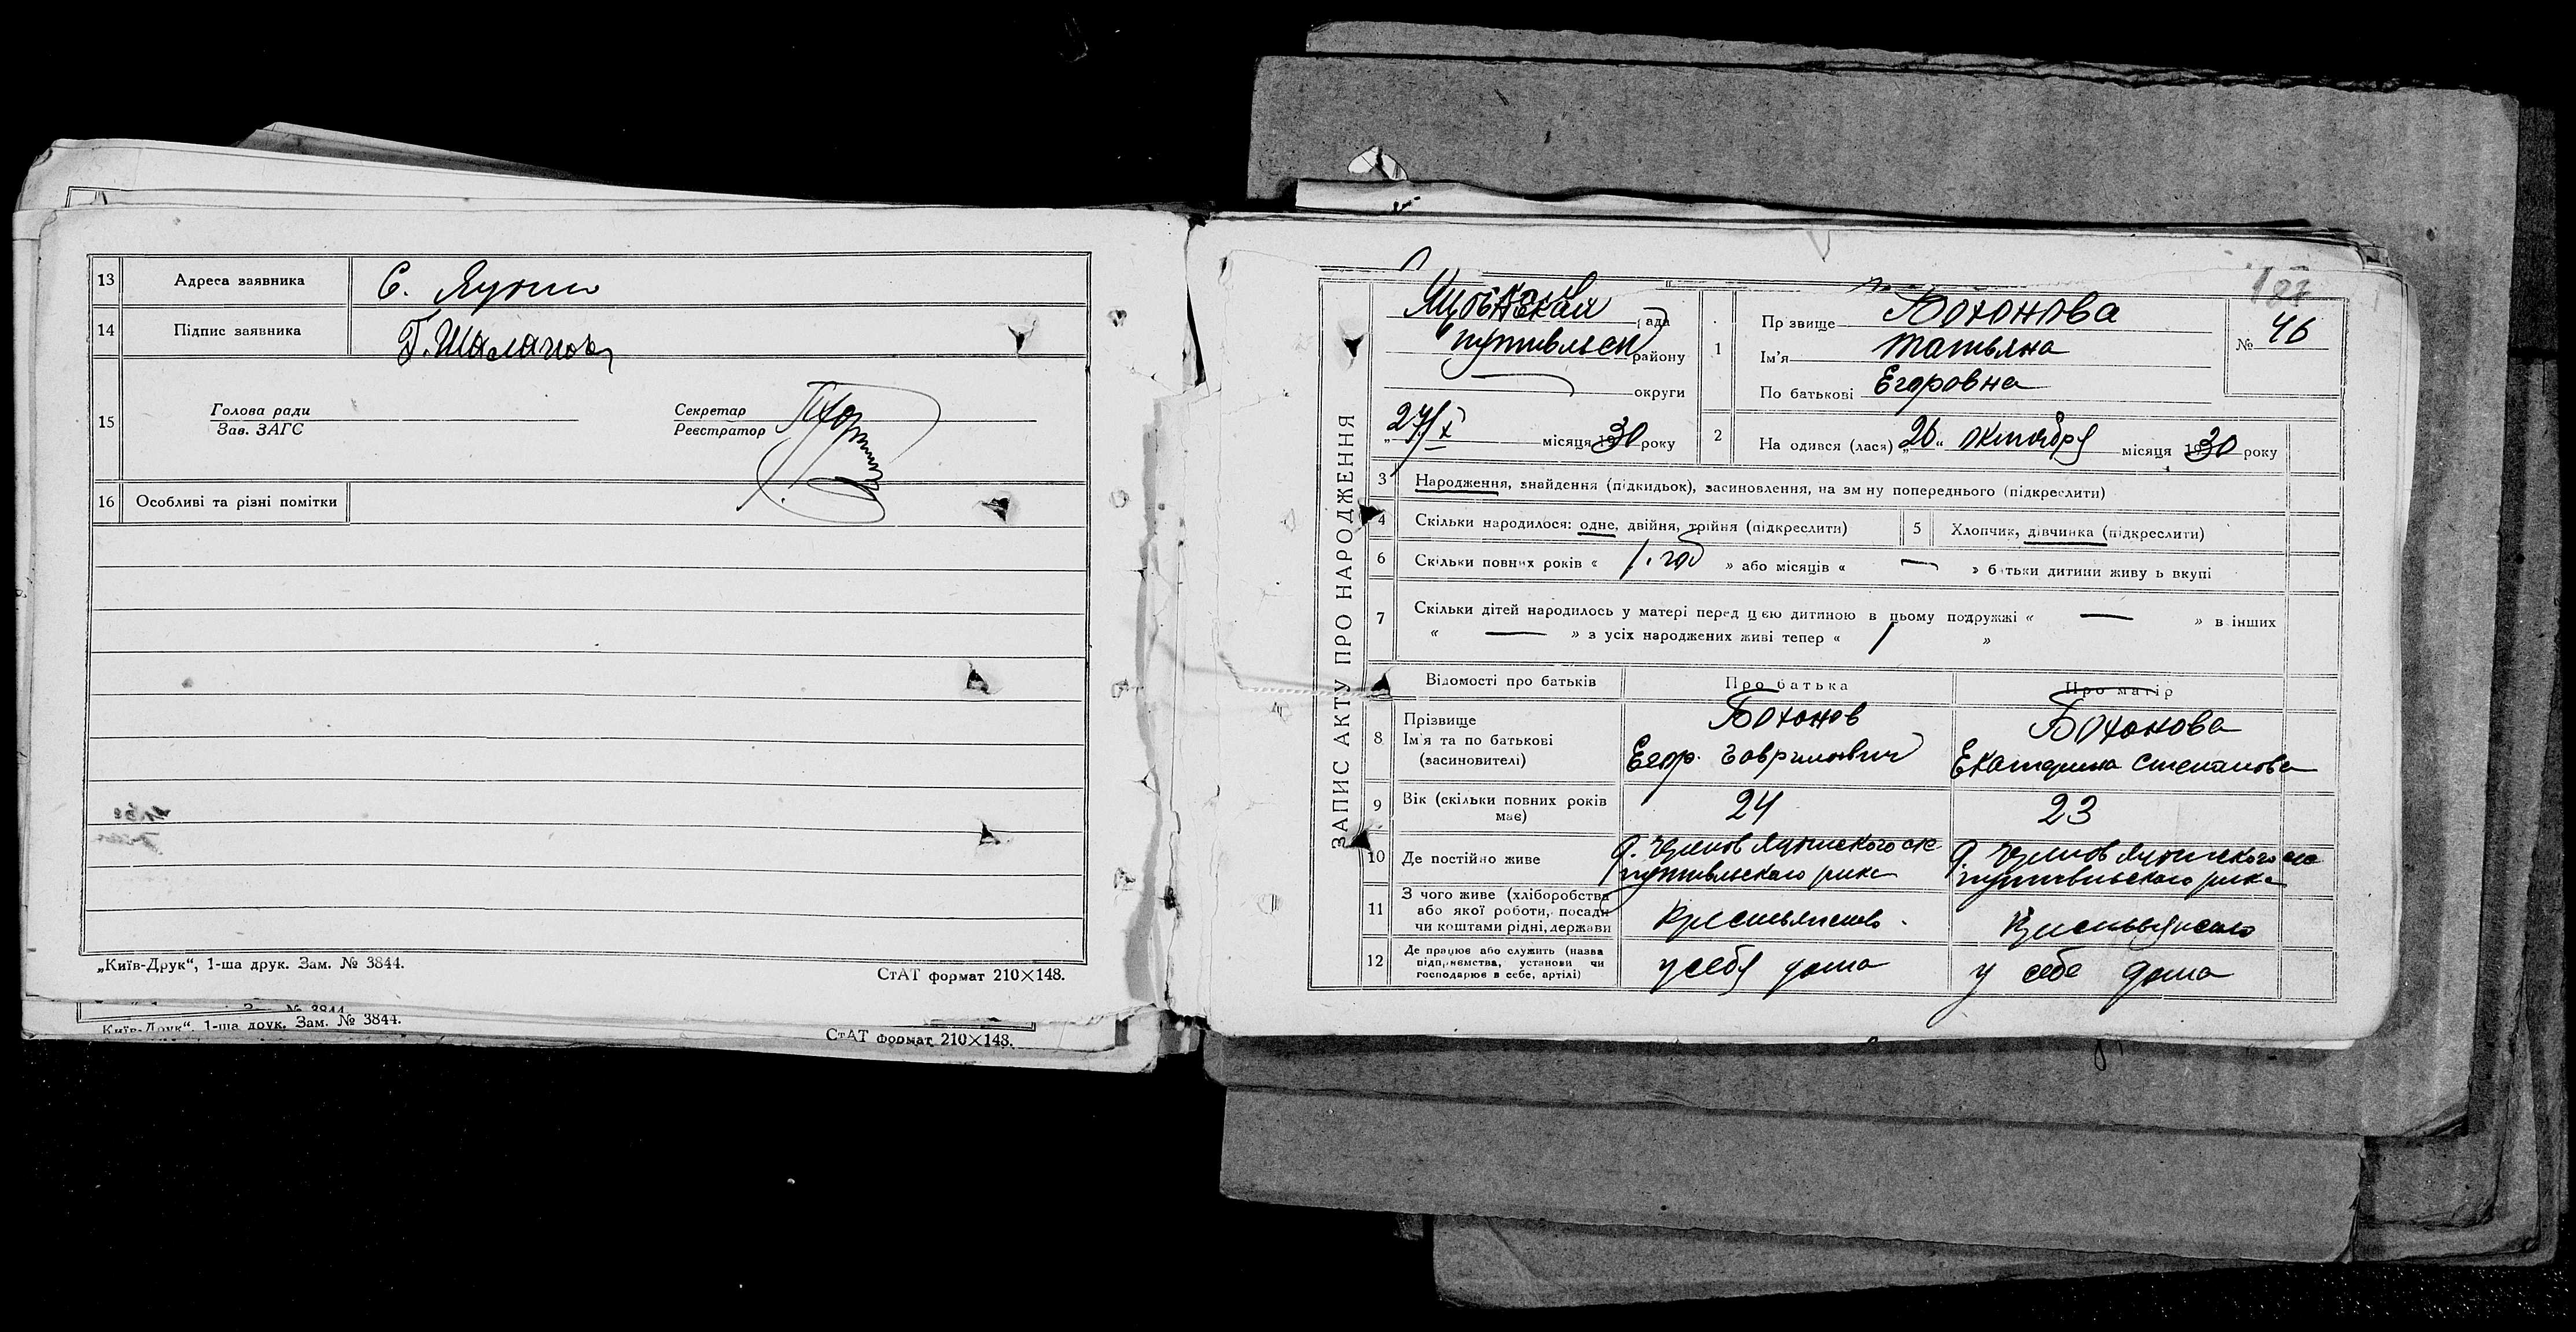 13 Адреса заявника С. Яцыно
14 Підпис заявника Г. Шаланов
15 Голова ради
Зав. ЗАГС
Секретар
Реєстратор
16 Особливі та різні помітки
„Київ-Друк“, 1-ша друк. Зам. № 3844.
СтАТ формат 210×148.
№ 3844
Київ-Друк“, 1-ша друк. Зам. № 3844.
СтАТ формат 210×148.
ЗАПИС АКТУ ПРО НАРОДЖЕННЯ
рада
Путивльск району
округи
27/X місяця 1930 року
1 Прізвище Бохонова
Ім'я Татьяна
По батькові Егоровна
№ 46
2 На одився (лася) „26“ октября місяця 1930 року
3 Народження, знайдення (підкидьок), засиновлення, на зм ну попереднього (підкреслити)
4 Скільки народилося: одне, двійня, трійня (підкреслити)
5 Хлопчик, дівчинка (підкреслити)
6 Скільки повних років « 1. год » або місяців « — » батьки дитини живу ь вкупі
7 Скільки дітей народилось у матері перед цією дитиною в цьому подружжі « — » в інших
« — » з усіх народжених живі тепер « 1 »
Відомості про батьків Про батька Про матір
8 Прізвище
Ім'я та по батькові
(засиновителі)
Бохонов
Егор. Гаврилович
Бохонова
Екатерина Степанова
9 Вік (скільки повних років має) 24 23
10 Де постійно живе
Путивльского рика
Путивльского рика
11 З чого живе (хліборобства
або якої роботи, посади
чи коштами рідні, держави
Крестьянство
Крестьянство
12 Де працює або служить (назва
підприємства, установи чи
господарює в себе, артілі)
у себя дома
у себе дома